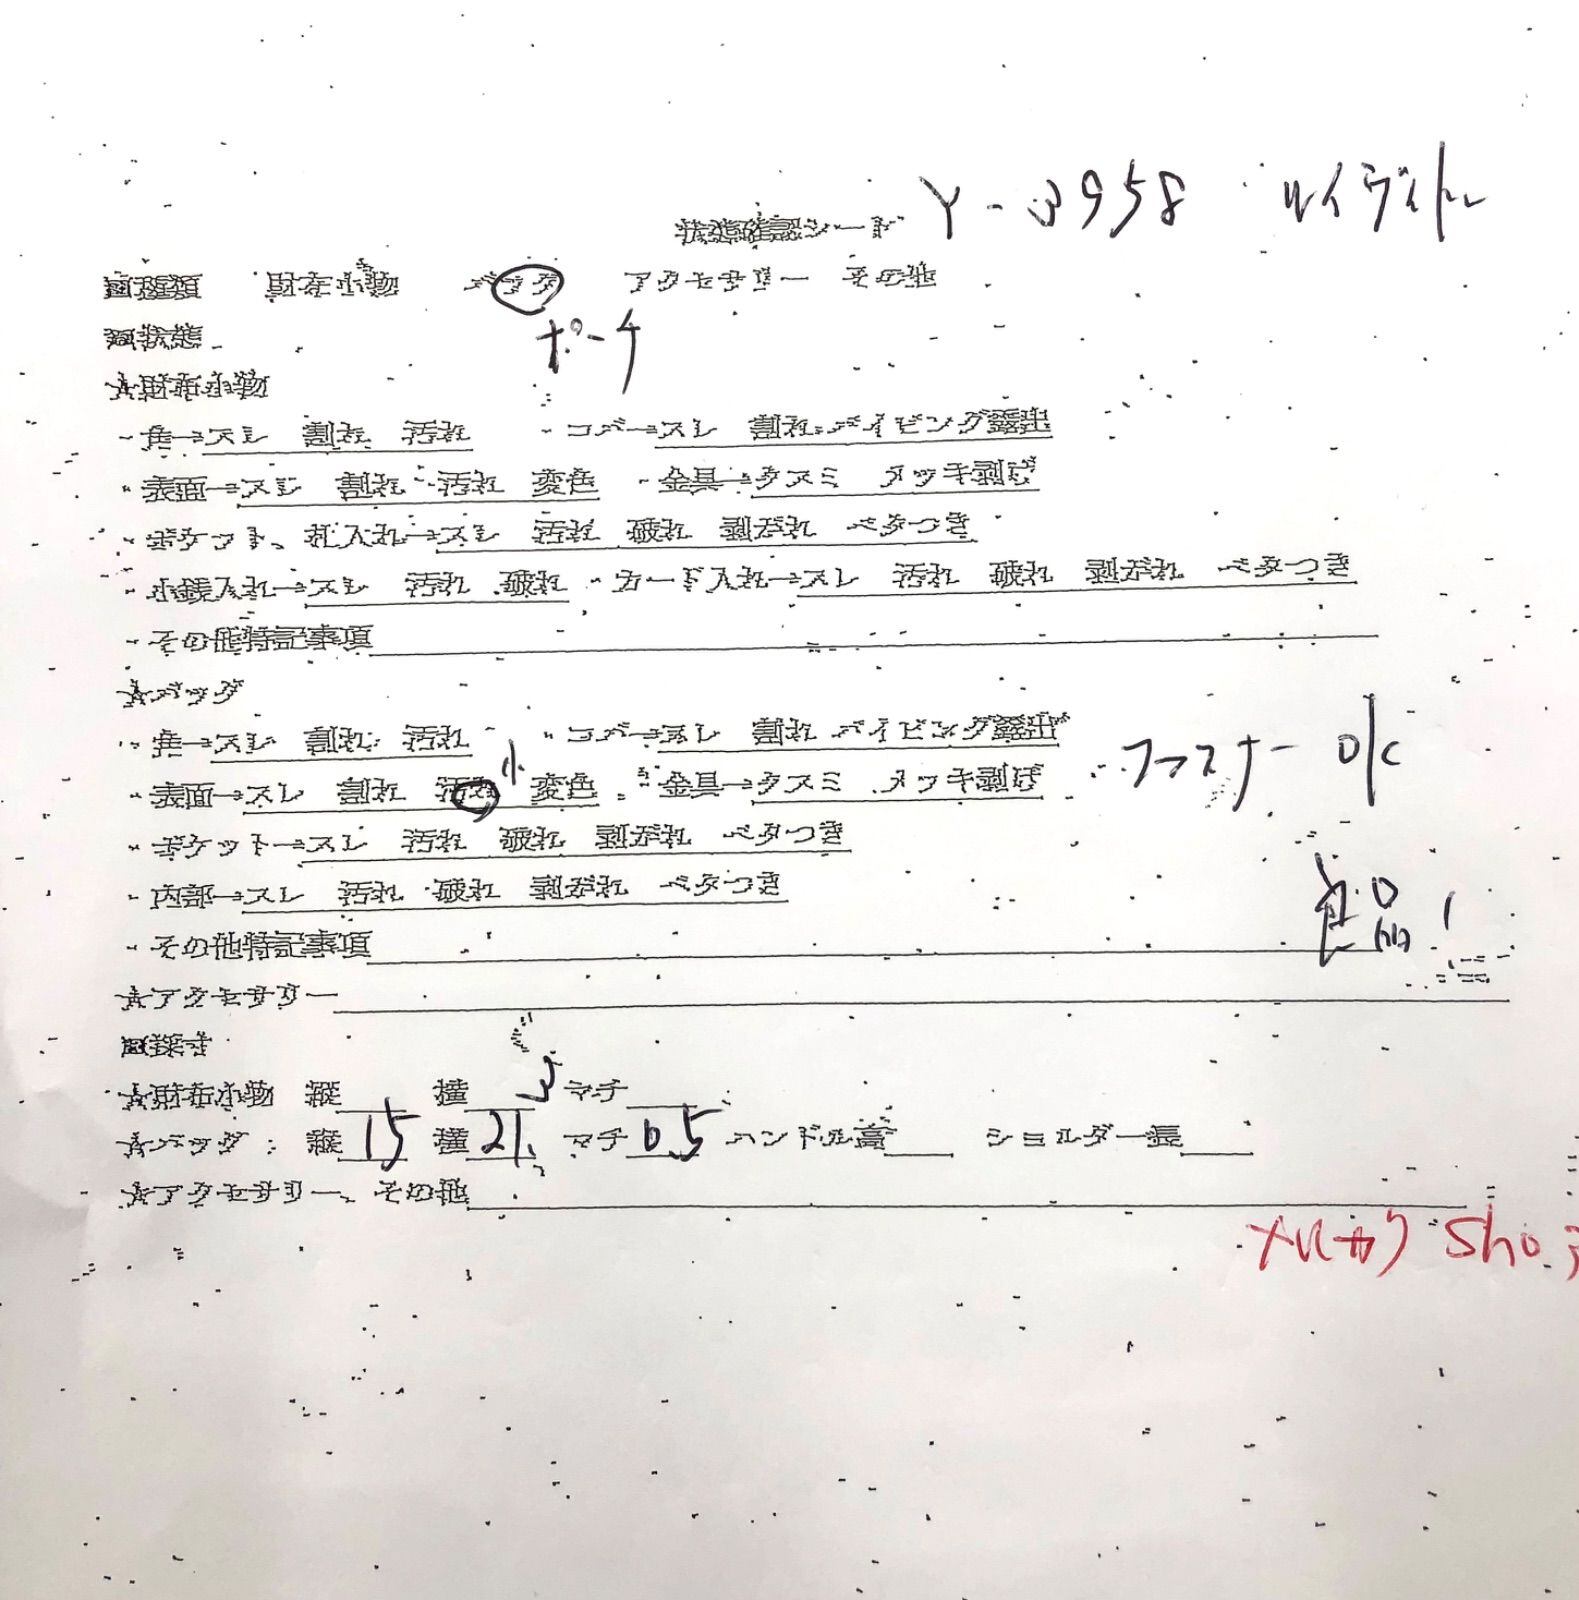 状態確認シート Y-3958 ルイヴィトン
種類 財布小物 バッグ アクセサリー その他
ポーチ
状態
★財布小物
・角→スレ 割れ 汚れ ・コバ→スレ 割れ パイピング露出
・表面→スレ 割れ 汚れ 変色 ・金具→クスミ メッキ剥げ
・ポケット、札入れ→スレ 汚れ 破れ 剥がれ ベタつき
・小銭入れ→スレ 汚れ 破れ ・カード入れ→スレ 汚れ 破れ 剥がれ ベタつき
・その他特記事項
★バッグ
・角→スレ 割れ 汚れ ・コバ→スレ 割れ パイピング露出
・表面→スレ 割れ 汚れ 小 変色 ・金具→クスミ メッキ剥げ ファスナー OK
・ポケット→スレ 汚れ 破れ 剥がれ ベタつき
・内部→スレ 汚れ 破れ 剥がれ ベタつき
良品!
・その他特記事項
★アクセサリー
採寸
★財布小物 縦 横 マチ
★バッグ 縦 15 横 21. マチ 0.5 ハンドル高 ショルダー長
★アクセサリー、その他
メルカリ Sho